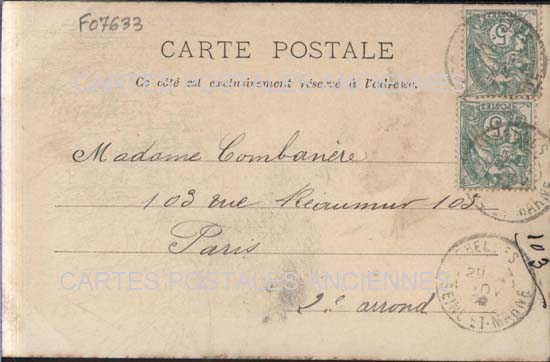 F07633
CARTE POSTALE
Ce côté est exclusivement réservé à l'adresse.
CARTES POSTALES ANCIENNES
Madame Combanère
103 rue Réaumur 103
Paris
CARTES POSTALES ANCIENNES
2e arrond
103
5
POSTES
5
SEINE-ET-MARNE